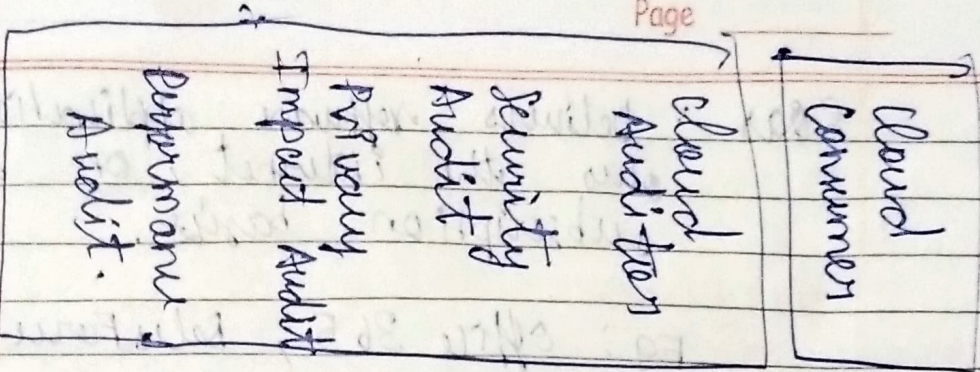 Page
Cloud
Consumer
Cloud
Auditor
Security
Audit
Privacy
Impact Audit
Performance
Audit.